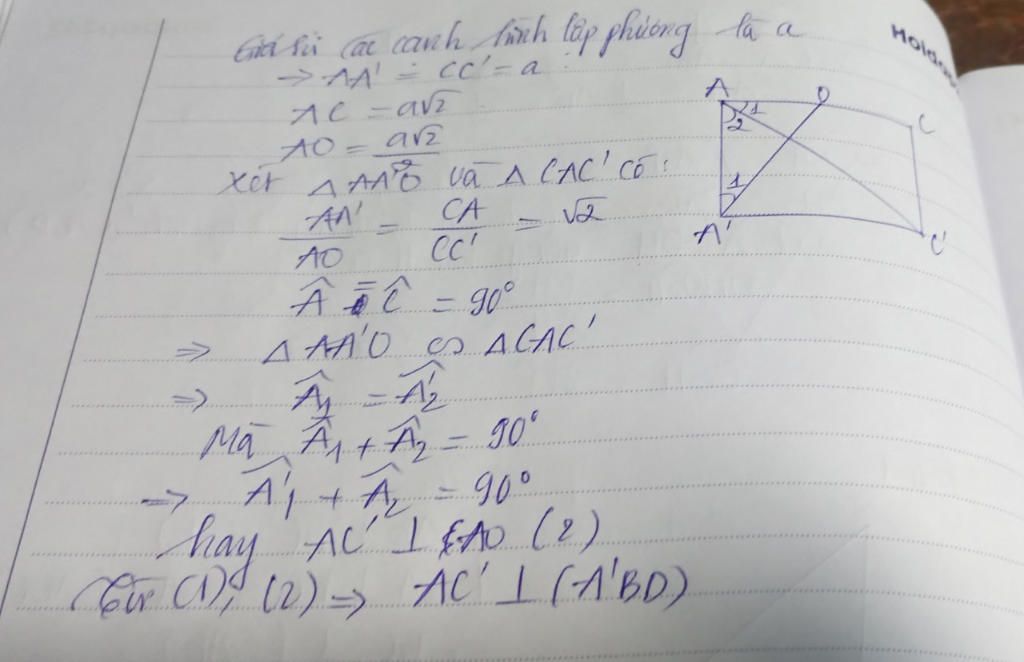 Giả sử các cạnh hình lập phương là a
→ AA' = CC' = a
AC = a√2
AO = a√2/2
Xét △AA'O và △CAC' có:
AA'/AO = CA/CC' = √2
Â = Ĉ = 90°
⇒ △AA'O ∽ △CAC'
⇒ Â₁ = Â'₂
Mà Â₁ + Â₂ = 90°
⇒ Â'₁ + Â₂ = 90°
hay AC' ⊥ AO (2)
Từ (1), (2) ⇒ AC' ⊥ (A'BD)
A O C
1
2
1
A' C'